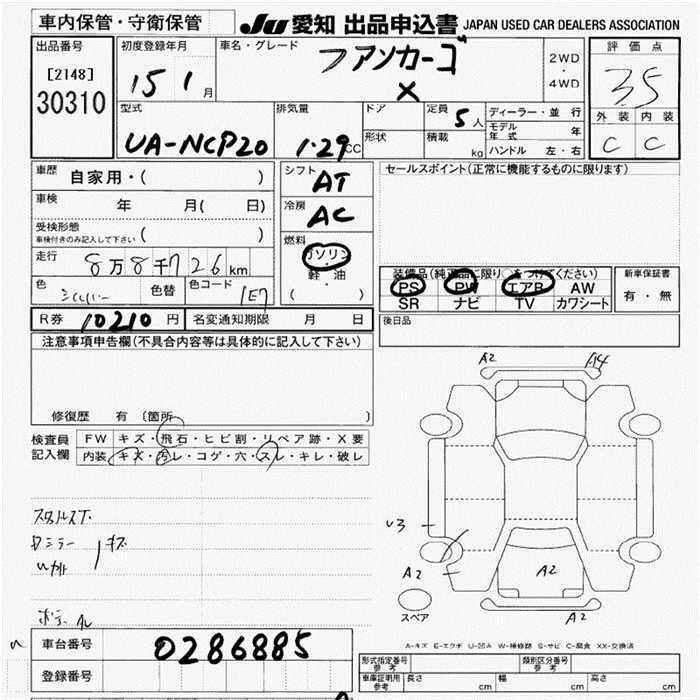 車内保管・守衛保管
JU 愛知 出品申込書 JAPAN USED CAR DEALERS ASSOCIATION
出品番号
[2148]
30310
初度登録年月
15 1 月
車名・グレード
ファンカーゴ
X
2WD
・
4WD
評価点
35
外装 内装
C C
型式
UA-NCP20
排気量
1.29 CC
ドア
形状
定員 5 人
積載 kg
ディーラー・並行
モデル年式 年
ハンドル 左・右
車歴 自家用・( )
車検 年 月( 日)
受検形態
車検付きのみ記入して下さい ( )
走行 8万8千726km
色 シルバー 色替 色コード 1E7
シフト AT
冷房 AC
燃料
ガソリン
・
軽・油
( )
セールスポイント(正常に機能するものに限ります)
装備品(純正品に限り○をつけてください)
PS PW エアB AW
SR ナビ TV カワシート
新車保証書
有・無
R券 10210 円 名変通知期限 月 日
後日品
注意事項申告欄(不具合内容等は具体的に記入して下さい)
修復歴 有 [箇所 ]
検査員記入欄
FW キズ・飛石・ヒビ割・リペア跡・X要
内装 キズ・汚レ・コゲ・穴・スレ・キレ・破レ
キズ
A2 A4
U3
A2
A2
A2
スペア
A-キズ E-エクボ U-凹み W-補修跡 S-サビ C-腐食 XX-交換済
車台番号 0286885
登録番号
形式指定番号 参考
類別区分番号 参考
車庫証明用 参考 長さ cm 幅 cm 高さ cm